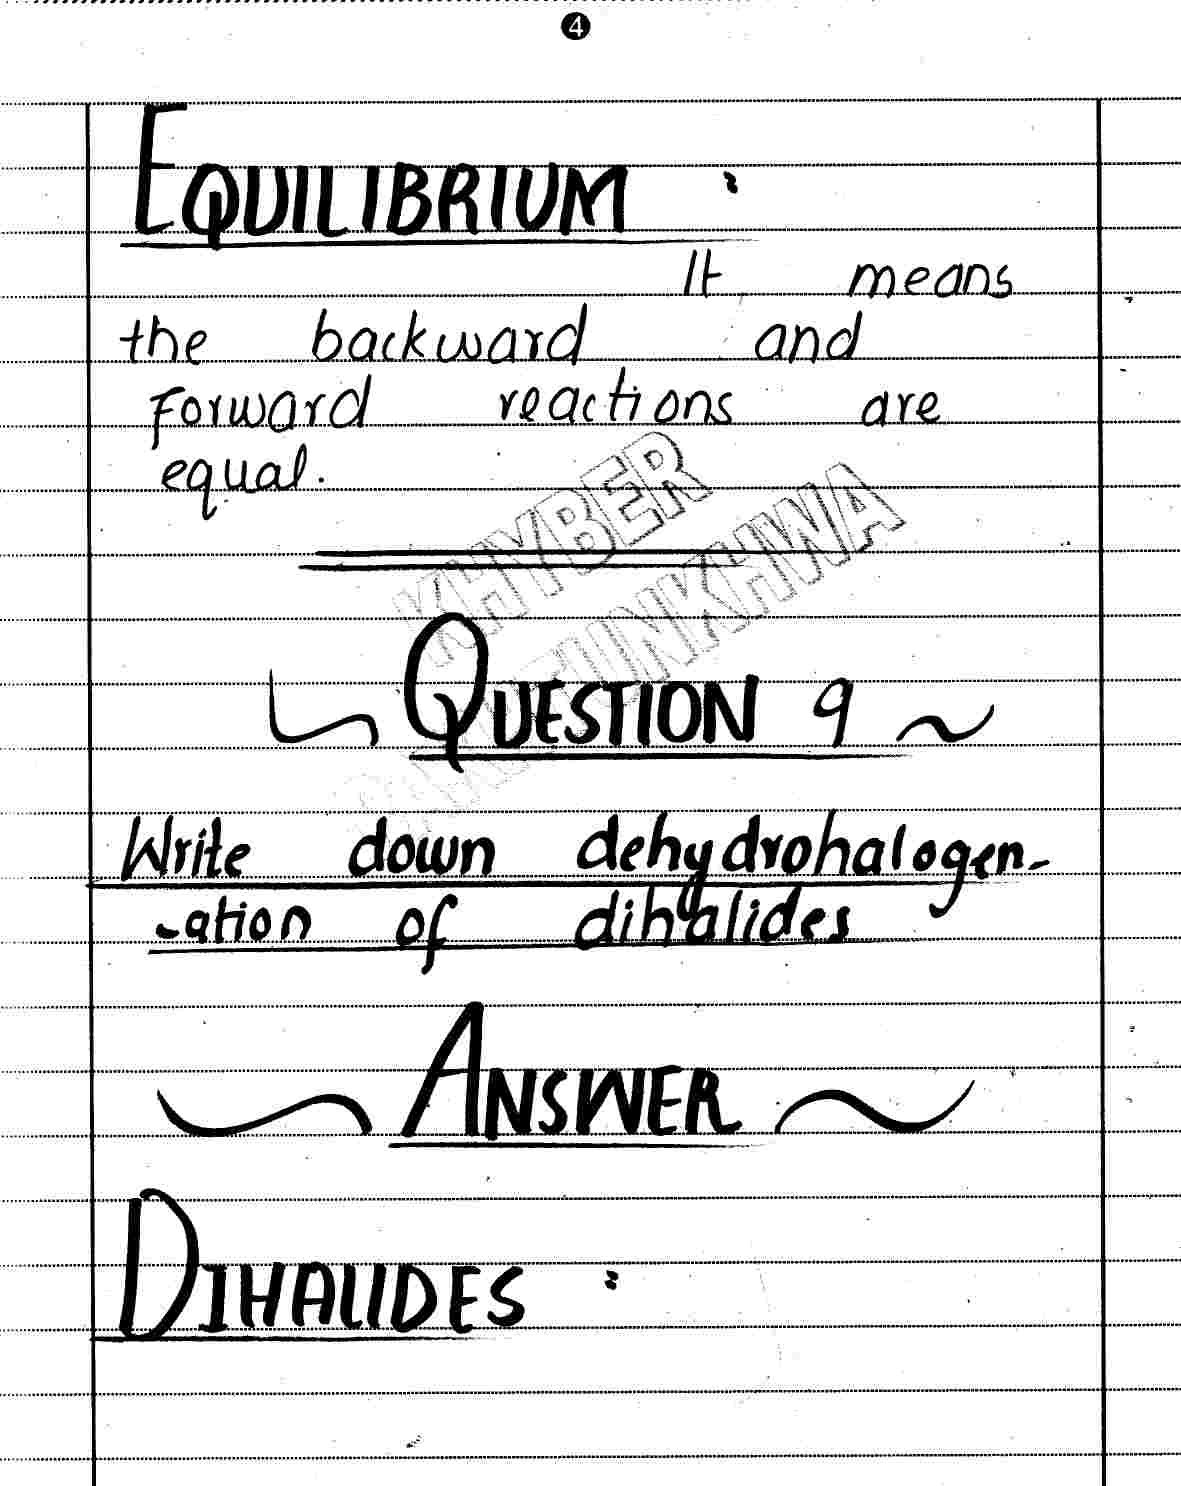 4
EQUILIBRIUM :
It means
the backward and
forward reactions are
equal.
KHYBER
PAKHTUNKHWA
QUESTION 9
Write down dehydrohalogen-
-ation of dihalides
ANSWER
DIHALIDES :